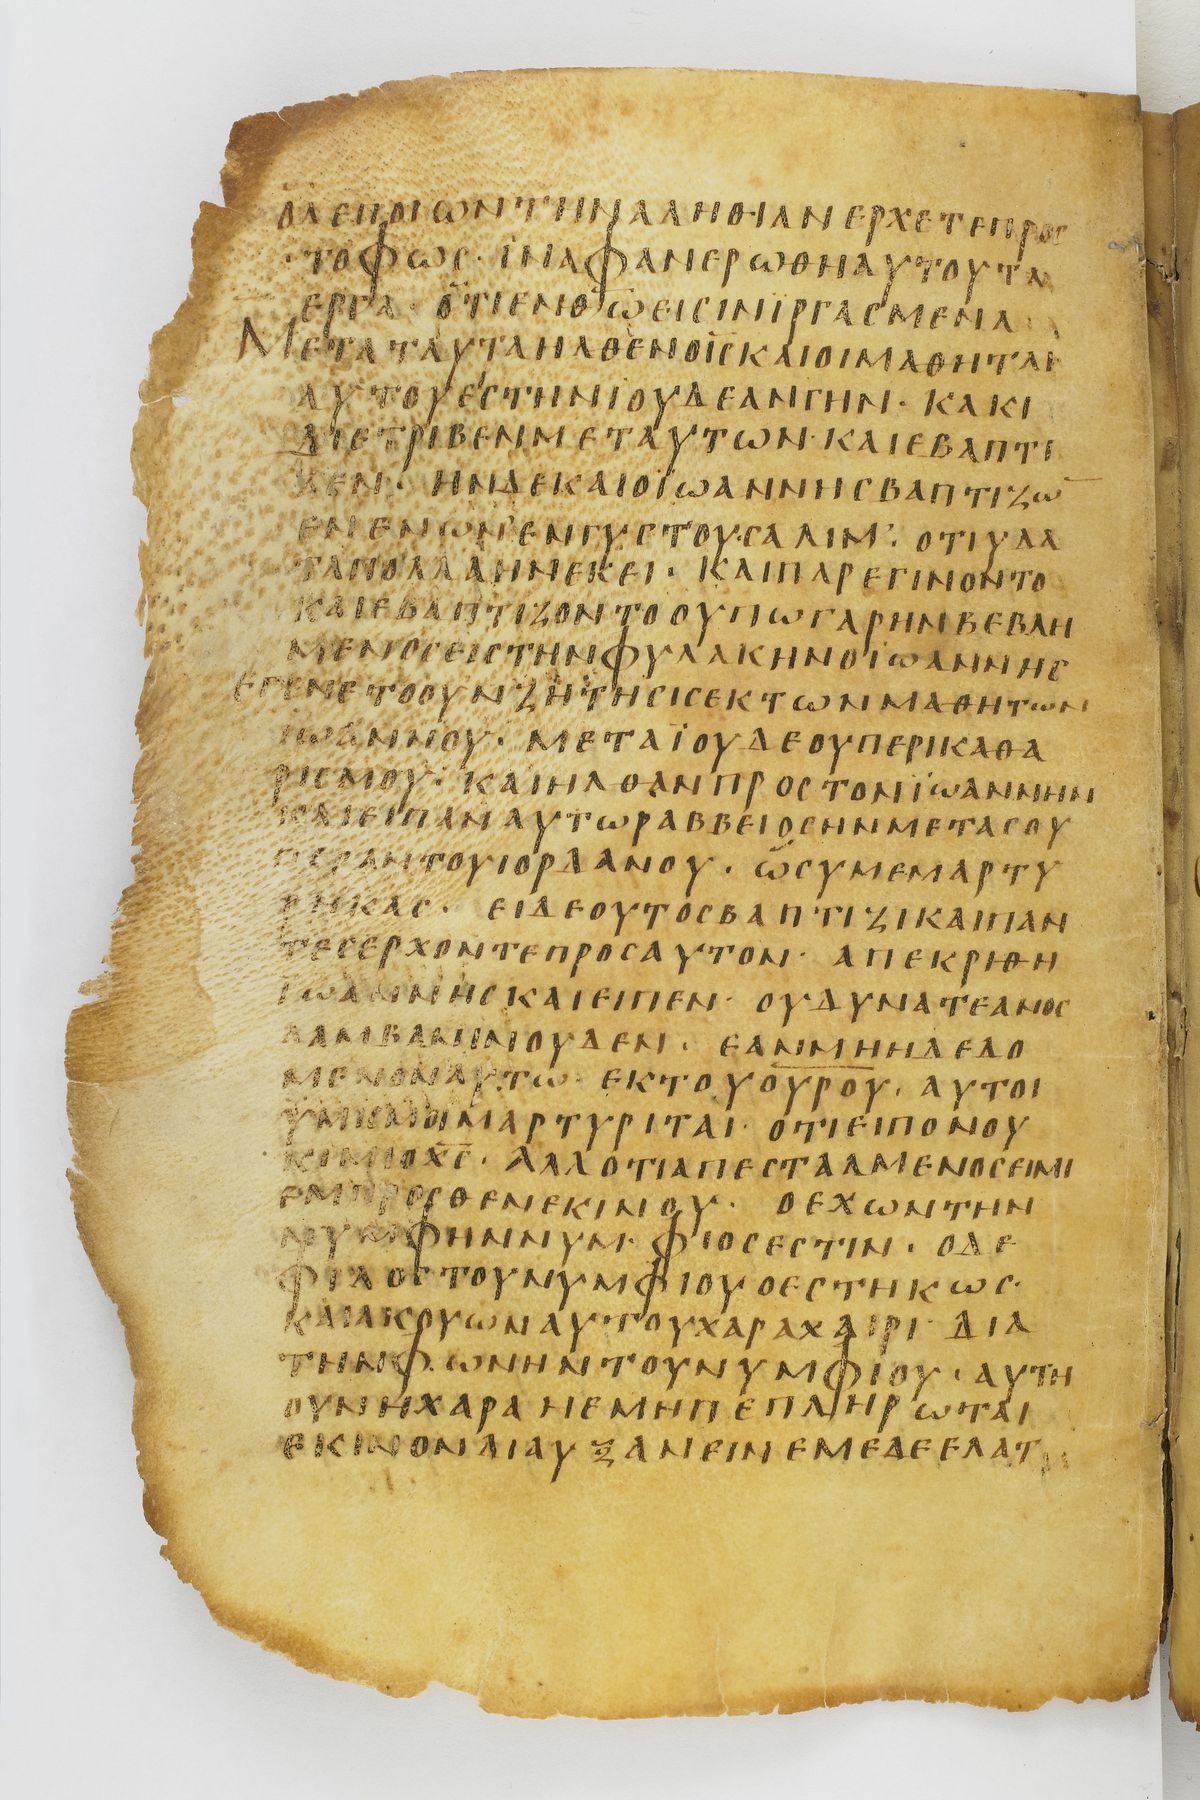 ΟΔΕΠΟΙΩΝΤΗΝΑΛΗΘΙΑΝΕΡΧΕΤΕΠΡΟΣ
ΤΟΦΩΣ· ΪΝΑΦΑΝΕΡΩΘΗΑΥΤΟΥΤΑ
ΕΡΓΑ· ΟΤΙΕΝΘ̅Ω̅ΕΙΣΙΝΙΡΓΑΣΜΕΝΑ
ΜΕΤΑΤΑΥΤΑΗΛΘΕΝΟΙ̅Σ̅ΚΑΙΟΙΜΑΘΗΤΑΙ
ΑΥΤΟΥΕΣΤΗΝΙΟΥΔΕΑΝΓΗΝ· ΚΑΚΙ
ΔΙΕΤΡΙΒΕΝΜΕΤΑΥΤΩΝ· ΚΑΙΕΒΑΠΤΙ
ΖΕΝ· ΗΝΔΕΚΑΙΟΪΩΑΝΝΗΣΒΑΠΤΙΖΩ̅
ΕΝΕΝΩΝΕΝΓΥΣΤΟΥΣΑΛΙΜ· ΟΤΙΥΔΑ
ΤΑΠΟΛΛΑΗΝΕΚΕΙ· ΚΑΙΠΑΡΕΓΙΝΟΝΤΟ
ΚΑΙΕΒΑΠΤΙΖΟΝΤΟΟΥΠΩΓΑΡΗΝΒΕΒΛΗ
ΜΕΝΟΣΕΙΣΤΗΝΦΥΛΑΚΗΝΟΙΩΑΝΝΗΣ
ΕΓΕΝΕΤΟΟΥΝΖΗΤΗΣΙΣΕΚΤΩΝΜΑΘΗΤΩΝ
ΪΩΑΝΝΟΥ· ΜΕΤΑΪΟΥΔΕΟΥΠΕΡΙΚΑΘΑ
ΡΙΣΜΟΥ· ΚΑΙΗΛΘΑΝΠΡΟΣΤΟΝΪΩΑΝΝΗΝ
ΚΑΙΕΙΠΑΝΑΥΤΩΡΑΒΒΕΙΟΣΗΝΜΕΤΑΣΟΥ
ΠΕΡΑΝΤΟΥΙΟΡΔΑΝΟΥ· ΩΣΥΜΕΜΑΡΤΥ
ΡΗΚΑΣ· ΕΙΔΕΟΥΤΟΣΒΑΠΤΙΖΙΚΑΙΠΑΝ
ΤΕΣΕΡΧΟΝΤΕΠΡΟΣΑΥΤΟΝ· ΑΠΕΚΡΙΘΗ
ΪΩΑΝΝΗΣΚΑΙΕΙΠΕΝ· ΟΥΔΥΝΑΤΕΑΝΟΣ
ΛΑΜΒΑΝΙΝΟΥΔΕΝ· ΕΑΝΜΗΗΔΕΔΟ
ΜΕΝΟΝΑΥΤΩ· ΕΚΤΟΥΟΥΡΟΥ· ΑΥΤΟΙ
ΫΜΙΣΜΟΙΜΑΡΤΥΡΙΤΑΙ· ΟΤΙΕΙΠΟΝΟΥ
ΚΙΜΙΟΧ̅Σ̅· ΑΛΛΟΤΙΑΠΕΣΤΑΛΜΕΝΟΣΕΙΜΙ
ΕΜΠΡΟΣΘΕΝΕΚΙΝΟΥ· ΟΕΧΩΝΤΗΝ
ΝΥΜΦΗΝΝΥΜΦΙΟΣΕΣΤΙΝ· ΟΔΕ
ΦΙΛΟΣΤΟΥΝΥΜΦΙΟΥΟΕΣΤΗΚΩΣ·
ΚΑΙΑΚΟΥΩΝΑΥΤΟΥΧΑΡΑΧΑΙΡΙ· ΔΙΑ
ΤΗΝΦΩΝΗΝΤΟΥΝΥΜΦΙΟΥ· ΑΥΤΗ
ΟΥΝΗΧΑΡΑΗΕΜΗΠΕΠΛΗΡΩΤΑΙ
ΕΚΙΝΟΝΔΙΑΥΞΑΝΕΙΝΕΜΕΔΕΕΛΑΤ